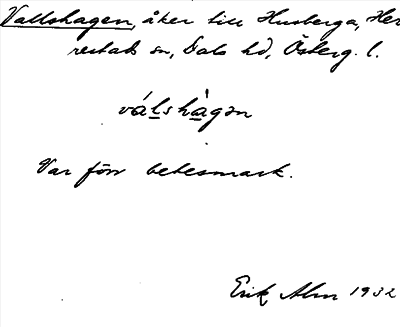 Vallshagen, åker till Husberga, Her
restads sn, Dals hd, Österg. l.
válshàgən
Var förr betesmark.
Erik Alm 1932